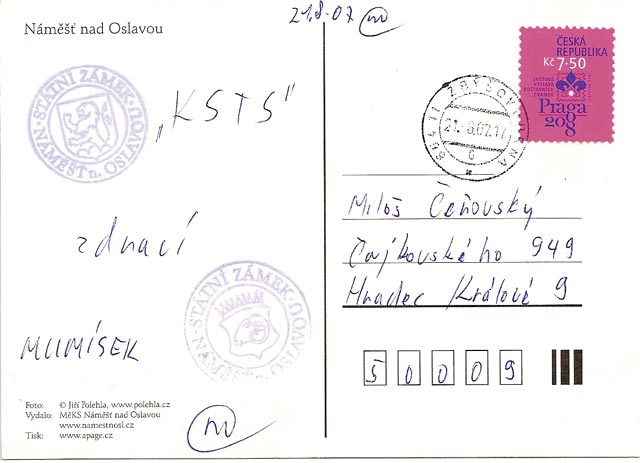 21.8.07
Náměšť nad Oslavou
STÁTNÍ ZÁMEK
NÁMĚŠŤ n. OSLAVOU
„KSTS"
ČESKÁ
REPUBLIKA
Kč 7·50
SVĚTOVÁ
VÝSTAVA
POŠTOVNÍCH
ZNÁMEK
Praga
2008
664 11 ZBÝŠOV U BRNA
21.-8.07.17
c
Miloš Čeňovský
Čajkovského 949
Hradec Králové 9
zdraví
STÁTNÍ ZÁMEK
NÁMĚŠŤ n. OSLAVOU
MUMÍSEK
50009
Foto: © Jiří Polehla, www.polehla.cz
Vydalo: MěKS Náměšť nad Oslavou
www.namestnosl.cz
Tisk: www.apage.cz